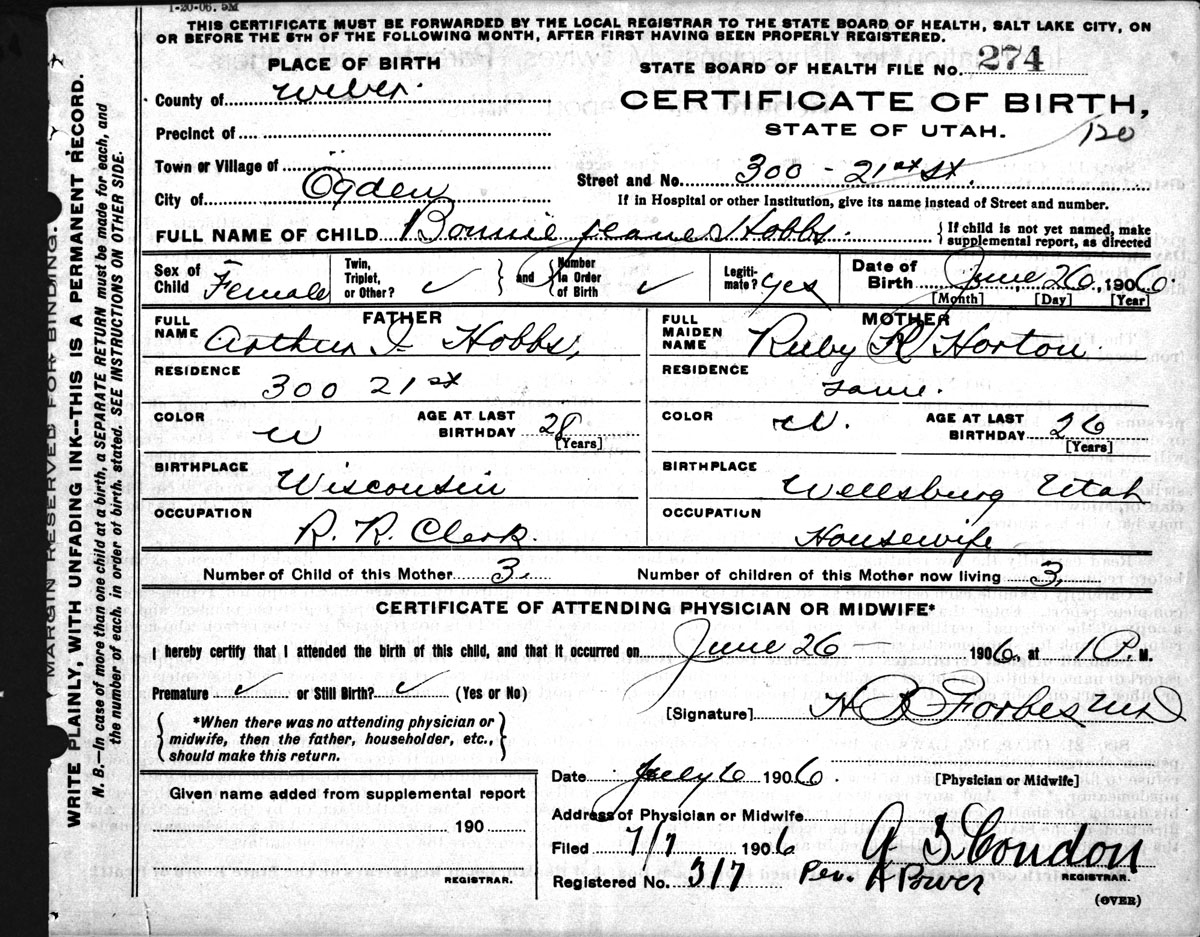 1-20-06. 5M
THIS CERTIFICATE MUST BE FORWARDED BY THE LOCAL REGISTRAR TO THE STATE BOARD OF HEALTH, SALT LAKE CITY, ON
OR BEFORE THE 5TH OF THE FOLLOWING MONTH, AFTER FIRST HAVING BEEN PROPERLY REGISTERED.
PLACE OF BIRTH
STATE BOARD OF HEALTH FILE No. 274
County of Weber.
CERTIFICATE OF BIRTH,
STATE OF UTAH.
120
Precinct of
Town or Village of
City of Ogden
Street and No. 300 - 21st St.
If in Hospital or other Institution, give its name instead of Street and number.
FULL NAME OF CHILD Bonnie Jeane Hobbs. {If child is not yet named, make
supplemental report, as directed
Sex of Child Female
Twin, Triplet, or Other? ✓ } and { Number in Order of Birth ✓
Legitimate? Yes
Date of Birth June 26, 1906.
[Month] [Day] [Year]
FATHER
FULL NAME Arthur I Hobbs,
RESIDENCE
300 21st
COLOR W
AGE AT LAST BIRTHDAY 28
[Years]
BIRTHPLACE
Wisconsin
OCCUPATION
R. R. Clerk.
MOTHER
FULL MAIDEN NAME Ruby R Horton
RESIDENCE
same.
COLOR W.
AGE AT LAST BIRTHDAY 26
[Years]
BIRTHPLACE
Wellsburg Utah
OCCUPATION
Housewife
Number of Child of this Mother 3. Number of children of this Mother now living 3.
CERTIFICATE OF ATTENDING PHYSICIAN OR MIDWIFE*
I hereby certify that I attended the birth of this child, and that it occurred on June 26 - 1906 at 1 P. M.
Premature ✓ or Still Birth? ✓ (Yes or No)
[Signature] H B Forbes MD
{*When there was no attending physician or
midwife, then the father, householder, etc.,
should make this return.}
Date July 6 1906. [Physician or Midwife]
Given name added from supplemental report
190
REGISTRAR.
Address of Physician or Midwife
Filed 7/7 1906
A S Condon
REGISTRAR.
Registered No. 317
Per. A Power
(OVER)
MARGIN RESERVED FOR BINDING.
WRITE PLAINLY, WITH UNFADING INK--THIS IS A PERMANENT RECORD.
N. B.—In case of more than one child at a birth, a SEPARATE RETURN must be made for each, and
the number of each, in order of birth, stated. SEE INSTRUCTIONS ON OTHER SIDE.